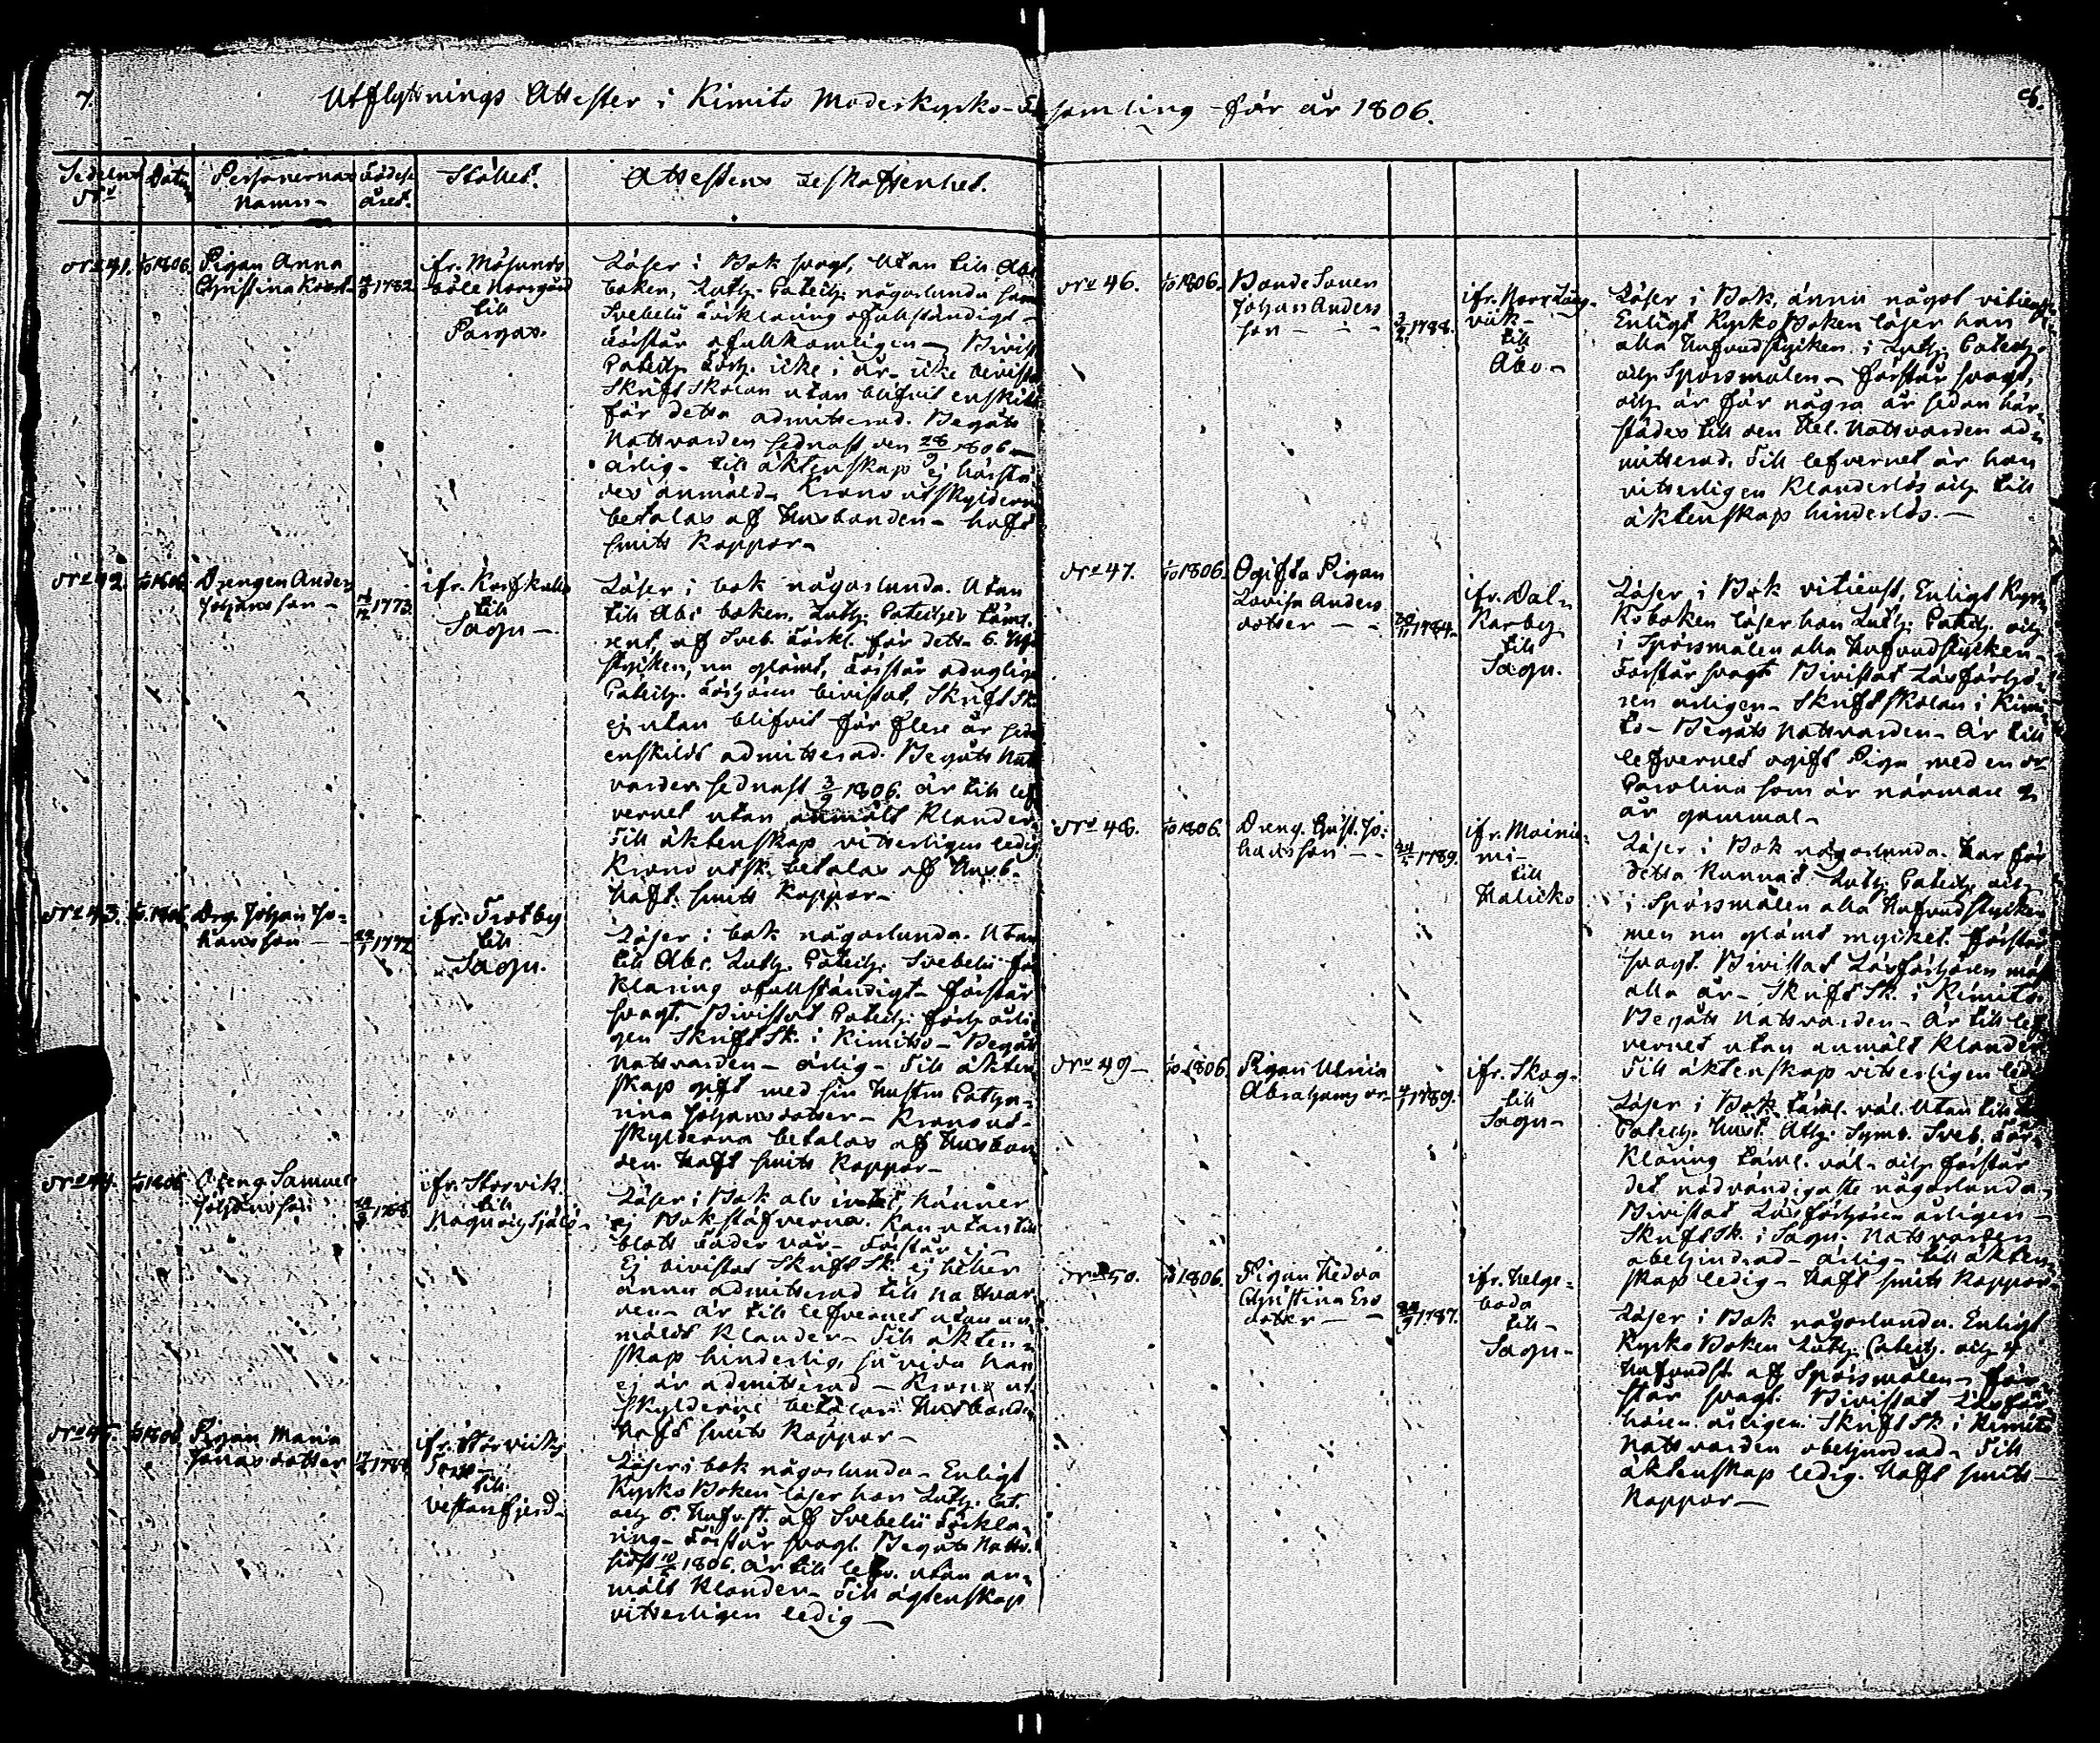 7.
8.
Utflyttnings Attester i Kimito Moderkyrko-Församling för år 1806.
Sedelns
No
Datum
Personernas
Namn
Födelse
året.
Stället.
Attestens beskaffenhet.
No 41. 1/10 1806.
Pigan Anna
Christina
1782
ifr. Mösunds
böle Norrgård
till
Pargas.
Läser i Bok svagt, Utan till Abc
boken, Luth. Catech. någorlunda samt
Svebelii Förklaring ofullständigt -
Förstår ofullkomligen - Bivist
Catech. Förh. icke i år - icke bivistat
Skrift Skolan utan blifvit enskilt
för detta admitterad. Begått
Nattvarden sednast den 28/9 1806 -
ärlig - till äktenskap ej härstä
des anmäld - Krono utskylderna
betalas af Husbonden - haft
smitt Koppor -
No 42. 1/10 1806.
Drengen Anders
Johansson -
1773.
ifr.
till
Sagu -
Läser i bok någorlunda. Utan
till Abc boken, Luth. Catechес täml.
rent, af Sveb. Förkl. för detta 6. Huf.
stycken, nu glömt, Förstår odugligt
Catech. Förhören bivistat, Skrift Sk.
ej utan blifvit för flere år sedan
enskildt admitterad. Begått Natt
varden sednast 3/9 1806. är till lef
vernet utan anmält Klander.
Till äktenskap vitterligen ledig
Krono utsk. betalas af Husb.
Haft smitt Koppor -
No 43. 1/10 1806
Drg. Johan Jo-
hansson -
1777
ifr. Trotby
till
Sagu.
Läser i bok någorlunda. Utan
till Abc. Luth. Catech. Svebelii för
klaring ofullständigt - förstår
svagt. Bivistat Catech. förh. årli
gen Skrift Sk. i Kimito - Begått
Nattvarden - ärlig - Till äkten
skap gift med sin Hustru Catha-
rina Johansdotter - Krono ut-
skylderna betalas af Husbon
den. Haft smitt Koppor -
No 44. 1/10 1806
Dreng Samuel
Johansson
1788.
ifr. Storvik
till
Nagu och Själö -
Läser i Bok als intet, känner
ej Bokstäfverna. Kan utan till
blott Fader vår - Förstår ej
Ej bivistat Skrift Sk. ej heller
ännu admitterad till Na ttvar
den - är till lefvernet utan an
mäldt Klander - Till äkten -
skap hinderlig, så vida han
ej är admitterad - Krono ut
skylderne betalar Husbonden
Haft smitt Koppor -
No 45. 1/10 1806
Pigan Maria
Jonasdotter
1788
ifr. Storviks
Torp -
till
Vestanfjerd -
Läser i bok någorlunda - Enligt
Kyrko Boken läser hon Luth. Cat.
och 6. Hufvst. af Svebelii Förkla-
ring - Förstår svagt. Begått Nattv.
sidst 1806. är till lefv. utan an-
mält Klander - Till ägtenskap
vitterligen ledig -
No 46. 1/10 1806.
Bonde Sonen
Johan Anders
son -
1788.
ifr. Norr Lång-
viik -
till
Åbo -
Läser i Bok, ännu något vitieust
Enligt Kyrko Boken läser han
alla Hufvudstycken i Luth. Catech.
och Spörsmålen - förstår svagt,
och är för några år sedan här-
städes till den Hel. Nattvarden ad-
mitterad. Till lefvernet är han
vitterligen Klanderlös och till
äktenskap hinderlös. -
No 47. 1/10 1806.
Ogifta Pigan
Lovisa Anders
dotter -
1784
ifr. Dal-
Karby
till
Sagu.
Läser i Bok vitieust, Enligt Kyr-
koboken läser hon Luth. Catech. och
i Spörsmålen alla Hufvudstycken -
Förstår svagt Bivistat Läsförhö-
ren årligen - Skriftskolan i Kimi
to - Begått Nattvarden - är till
lefvernet ogift Piga med en dr
Carolina som är närmare 2
år gammal -
No 48. 1/10 1806.
Dreng. Gust. Jo-
hansson -
1789.
ifr. Mainie-
mi -
till
Halicko
Läser i Bok någorlunda. Har för
detta kunnat Luth. Catech. och
i Spörsmålen alla Hufvudstycken
men nu glömt mycket. förstår
svagt. Bivistat Läsförhören mäst
alla år - Skrift Sk. i Kimito.
Begått Nattvarden - är till lef
vernet utan anmält Klander
Till äktenskap vitterligen ledig
No 49 - 1/10 1806.
Pigan Ulrica
Abrahams dr -
1789.
ifr. Skog -
till
Sagu -
Läser i Bok täml. väl. Utan till
Catech. Hust. Ath. Symb. Sveb. För-
klaring täml. väl - och förstår
det nödvändigaste någorlunda -
Bivistat Läsförhören årligen -
Skrift Sk. i Sagu. Nattvarden
obehindrad - ärlig - till äkten-
skap ledig - Haft smitt Koppor -
No 50. 1/10 1806.
Pigan Hedda
Christina Ers
dotter -
1787.
ifr. Helge-
boda
till -
Sagu -
Läser i Bok någorlunda. Enligt
Kyrko Boken Luth. Catech. och 4
Hufvudst. af Spörsmålen - för-
står svagt. Bivistat Läsför
hören årligen. Skrift Sk. i Kimito
Nattvarden obehindrad - Till
äktenskap ledig. Haft smitt
Koppor -